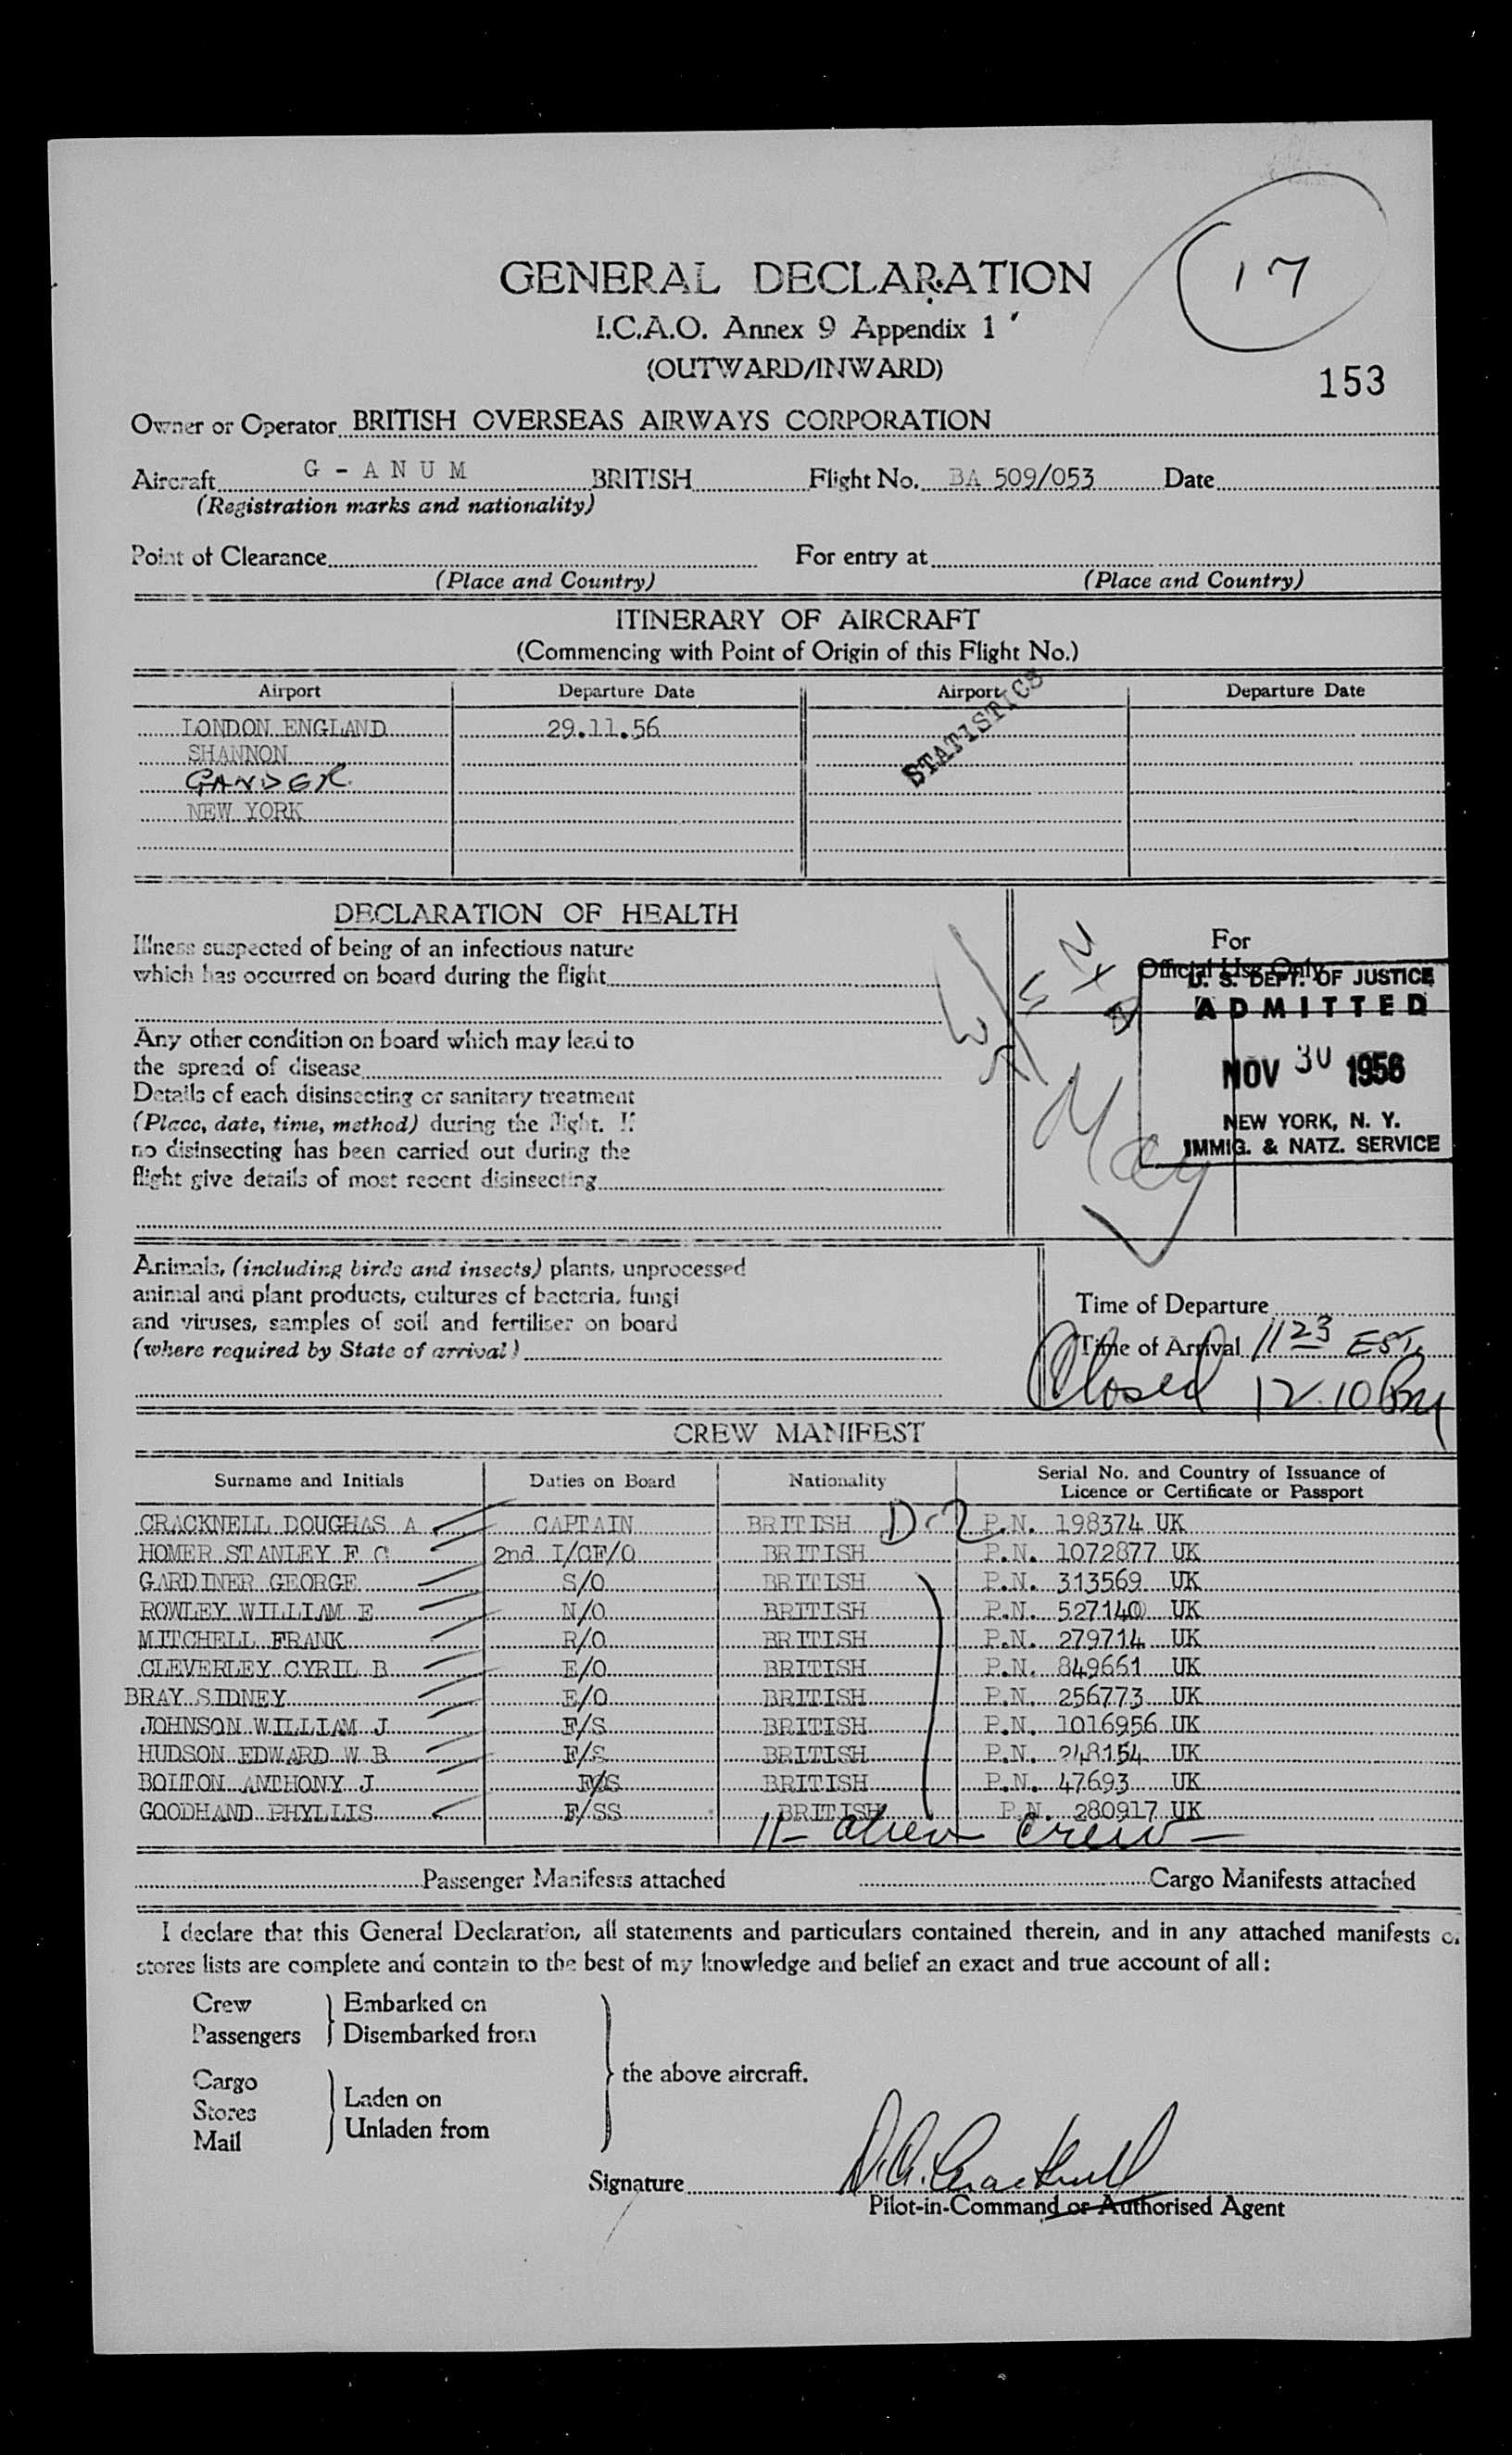 17
GENERAL DECLARATION
I.C.A.O. Annex 9 Appendix 1
(OUTWARD/INWARD)
153
Owner or Operator BRITISH OVERSEAS AIRWAYS CORPORATION
Aircraft G - A N U M BRITISH Flight No. BA 509/053 Date
(Registration marks and nationality)
Point of Clearance For entry at
(Place and Country) (Place and Country)
ITINERARY OF AIRCRAFT
(Commencing with Point of Origin of this Flight No.)
Airport Departure Date Airport Departure Date
STATISTICS
LONDON ENGLAND 29.11.56
SHANNON
GANDER
NEW YORK
DECLARATION OF HEALTH
Illness suspected of being of an infectious nature
which has occurred on board during the flight
Any other condition on board which may lead to
the spread of disease
Details of each disinsecting or sanitary treatment
(Place, date, time, method) during the flight. If
no disinsecting has been carried out during the
flight give details of most recent disinsecting
For
Official Use Only
U. S. DEPT. OF JUSTICE
ADMITTED
NOV 30 1956
NEW YORK, N. Y.
IMMIG. & NATZ. SERVICE
Animals, (including birds and insects) plants, unprocessed
animal and plant products, cultures of bacteria, fungi
and viruses, samples of soil and fertiliser on board
(where required by State of arrival)
Time of Departure
Time of Arrival 1123 EST.
Closed 12.10 PM
CREW MANIFEST
Surname and Initials Duties on Board Nationality Serial No. and Country of Issuance of
Licence or Certificate or Passport
CRACKNELL DOUGHAS A CAPTAIN BRITISH D-2 P.N. 198374 UK
HOMER STANLEY F C 2nd I/CF/O BRITISH P.N. 1072877 UK
GARDINER GEORGE S/O BRITISH P.N. 313569 UK
ROWLEY WILLIAM E N/O BRITISH P.N. 527140 UK
MITCHELL FRANK R/O BRITISH P.N. 279714 UK
CLEVERLEY CYRIL B E/O BRITISH P.N. 849661 UK
BRAY SIDNEY E/O BRITISH P.N. 256773 UK
JOHNSON WILLIAM J F/S BRITISH P.N. 1016956 UK
HUDSON EDWARD W B F/S BRITISH P.N. 248154 UK
BOLTON ANTHONY J F/S BRITISH P.N. 47693 UK
GOODHAND PHYLLIS F/SS BRITISH P.N. 280917 UK
11- alien crew -
Passenger Manifests attached Cargo Manifests attached
I declare that this General Declaration, all statements and particulars contained therein, and in any attached manifests or
stores lists are complete and contain to the best of my knowledge and belief an exact and true account of all:
Crew Embarked on
Passengers Disembarked from
the above aircraft.
Cargo
Stores Laden on
Mail Unladen from
Signature D.A. Cracknell
Pilot-in-Command or Authorised Agent